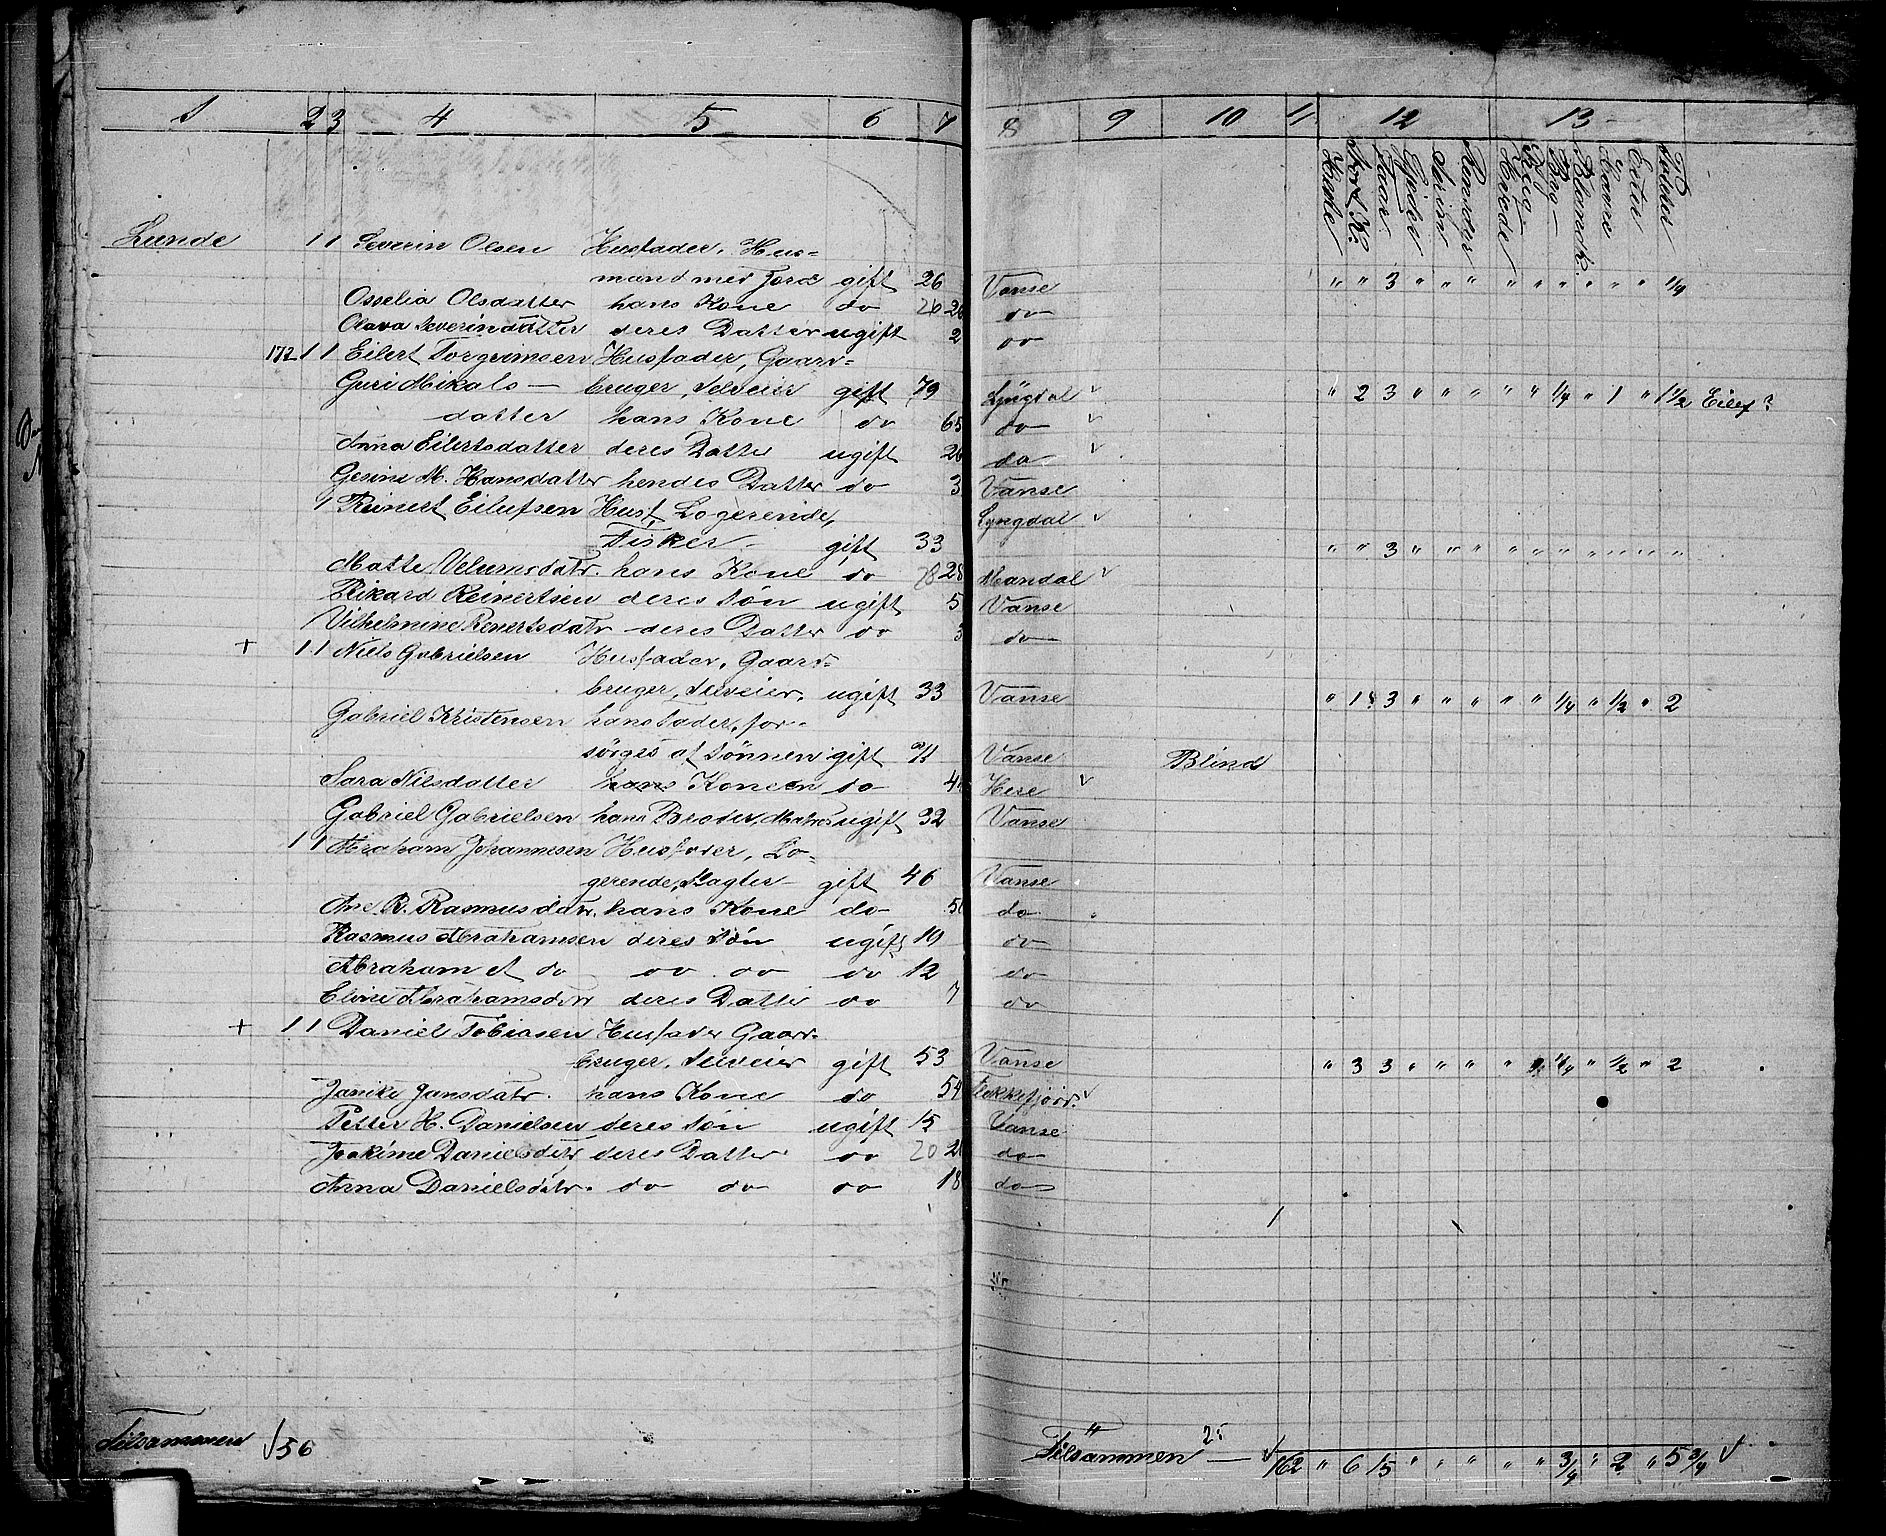 1 2 3 4 5 6 7 8 9 10 11 12 13
Heste Stort K. Faar Gjeder Sviin Rensdyr Hvede Rug Byg Blandk. Havre Erter Poteter
Lunde 1 1 Severin Olsen Husfader, Hus=
mand med Jord gift 26 Vanse " " 3 " " " " " " " " " 1/4
Osselia Olsdatter hans Kone do 26 26 do
Olava Severindatter deres Datter ugift 2 do
172 1 1 Eilert Torgrimsen Husfader, Gaard=
Guri Mikals— bruger, Selveier gift 79 Lyngdal " 2 3 " " " " " 1/4 " 1 " 1 1/2 Eilef?
datter hans Kone do 65 do
Anna Eilertsdatter deres Datter ugift 26 do
Gesine M. Hansdatter hendes Datter do 3 Vanse
1 Reinert Eilufsen Husf, Logerende, Lyngdal
Fisker gift 33 " " 3 " " " " " " " " " "
Matte Velumsdatr. hans Kone do 28 28 Mandal
Rikard Reinertsen deres Søn ugift 5 Vanse
Vilhelmine Renertsdatr deres Datter do 3 do
+ 1 1 Niels Gabrielsen Husfader, Gaard=
bruger, Selveier, ugift 33 Vanse " 1 3 " " " " " 1/4 " 1/2 " 2
Gabriel Kristensen hans Fader, for=
sørges af Sønnen gift 71 Vanse Blind
Sara Nilsdatter hans Konen do Hese
Gabriel Gabrielsen hans Broder, Matros ugift 32 Vanse
1 1 Abraham Johannesen Husfader, Lo=
gerende, Slagter gift 46 Vanse
Ane R. Rasmusdatr. hans Kone do do
Rasmus Abrahamsen deres Søn ugift 19 do
Abraham A do do do do 12 do
Elvine Abrahamsdatr deres Datter do 7 do
+ 1 1 Daniel Tobiasen Husfader Gaard=
bruger, Selveier gift 53 Vanse " 3 3 " " " " 1/4 " 1/2 " 2
Janike Jansdatr. hans Kone do 54 Flekkefjord
Petter H. Danielsen deres Søn ugift 15 Vanse
Joakime Danielsdatr deres Datter do 20 2 do
Anna Danielsdatr. do do do 18 do
Tilsammen 56
Tilsammen 25 — 162 " 6 15 " " " " " 3/4 " 2 " 5 3/4